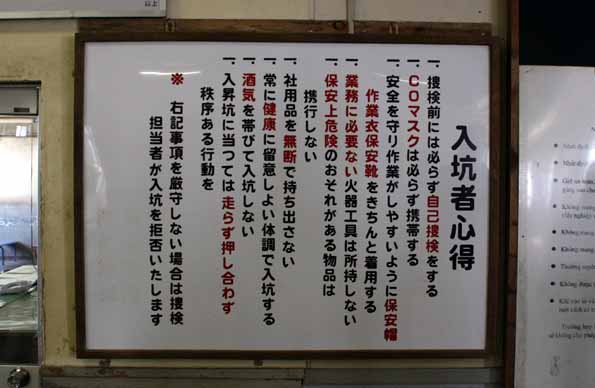 以上
入坑者心得
一、捜検前には必らず自己捜検をする
一、COマスクは必らず携帯する
一、安全を守り作業がしやすいように保安帽
作業衣保安靴をきちんと着用する
一、業務に必要ない火器工具は所持しない
一、保安上危険のおそれがある物品は
携行しない
一、社用品を無断で持ち出さない
一、常に健康に留意しよい体調で入坑する
一、酒気を帯びて入坑しない
一、入昇坑に当つては走らず押し合わず
秩序ある行動を
※ 右記事項を厳守しない場合は捜検
担当者が入坑を拒否いたします